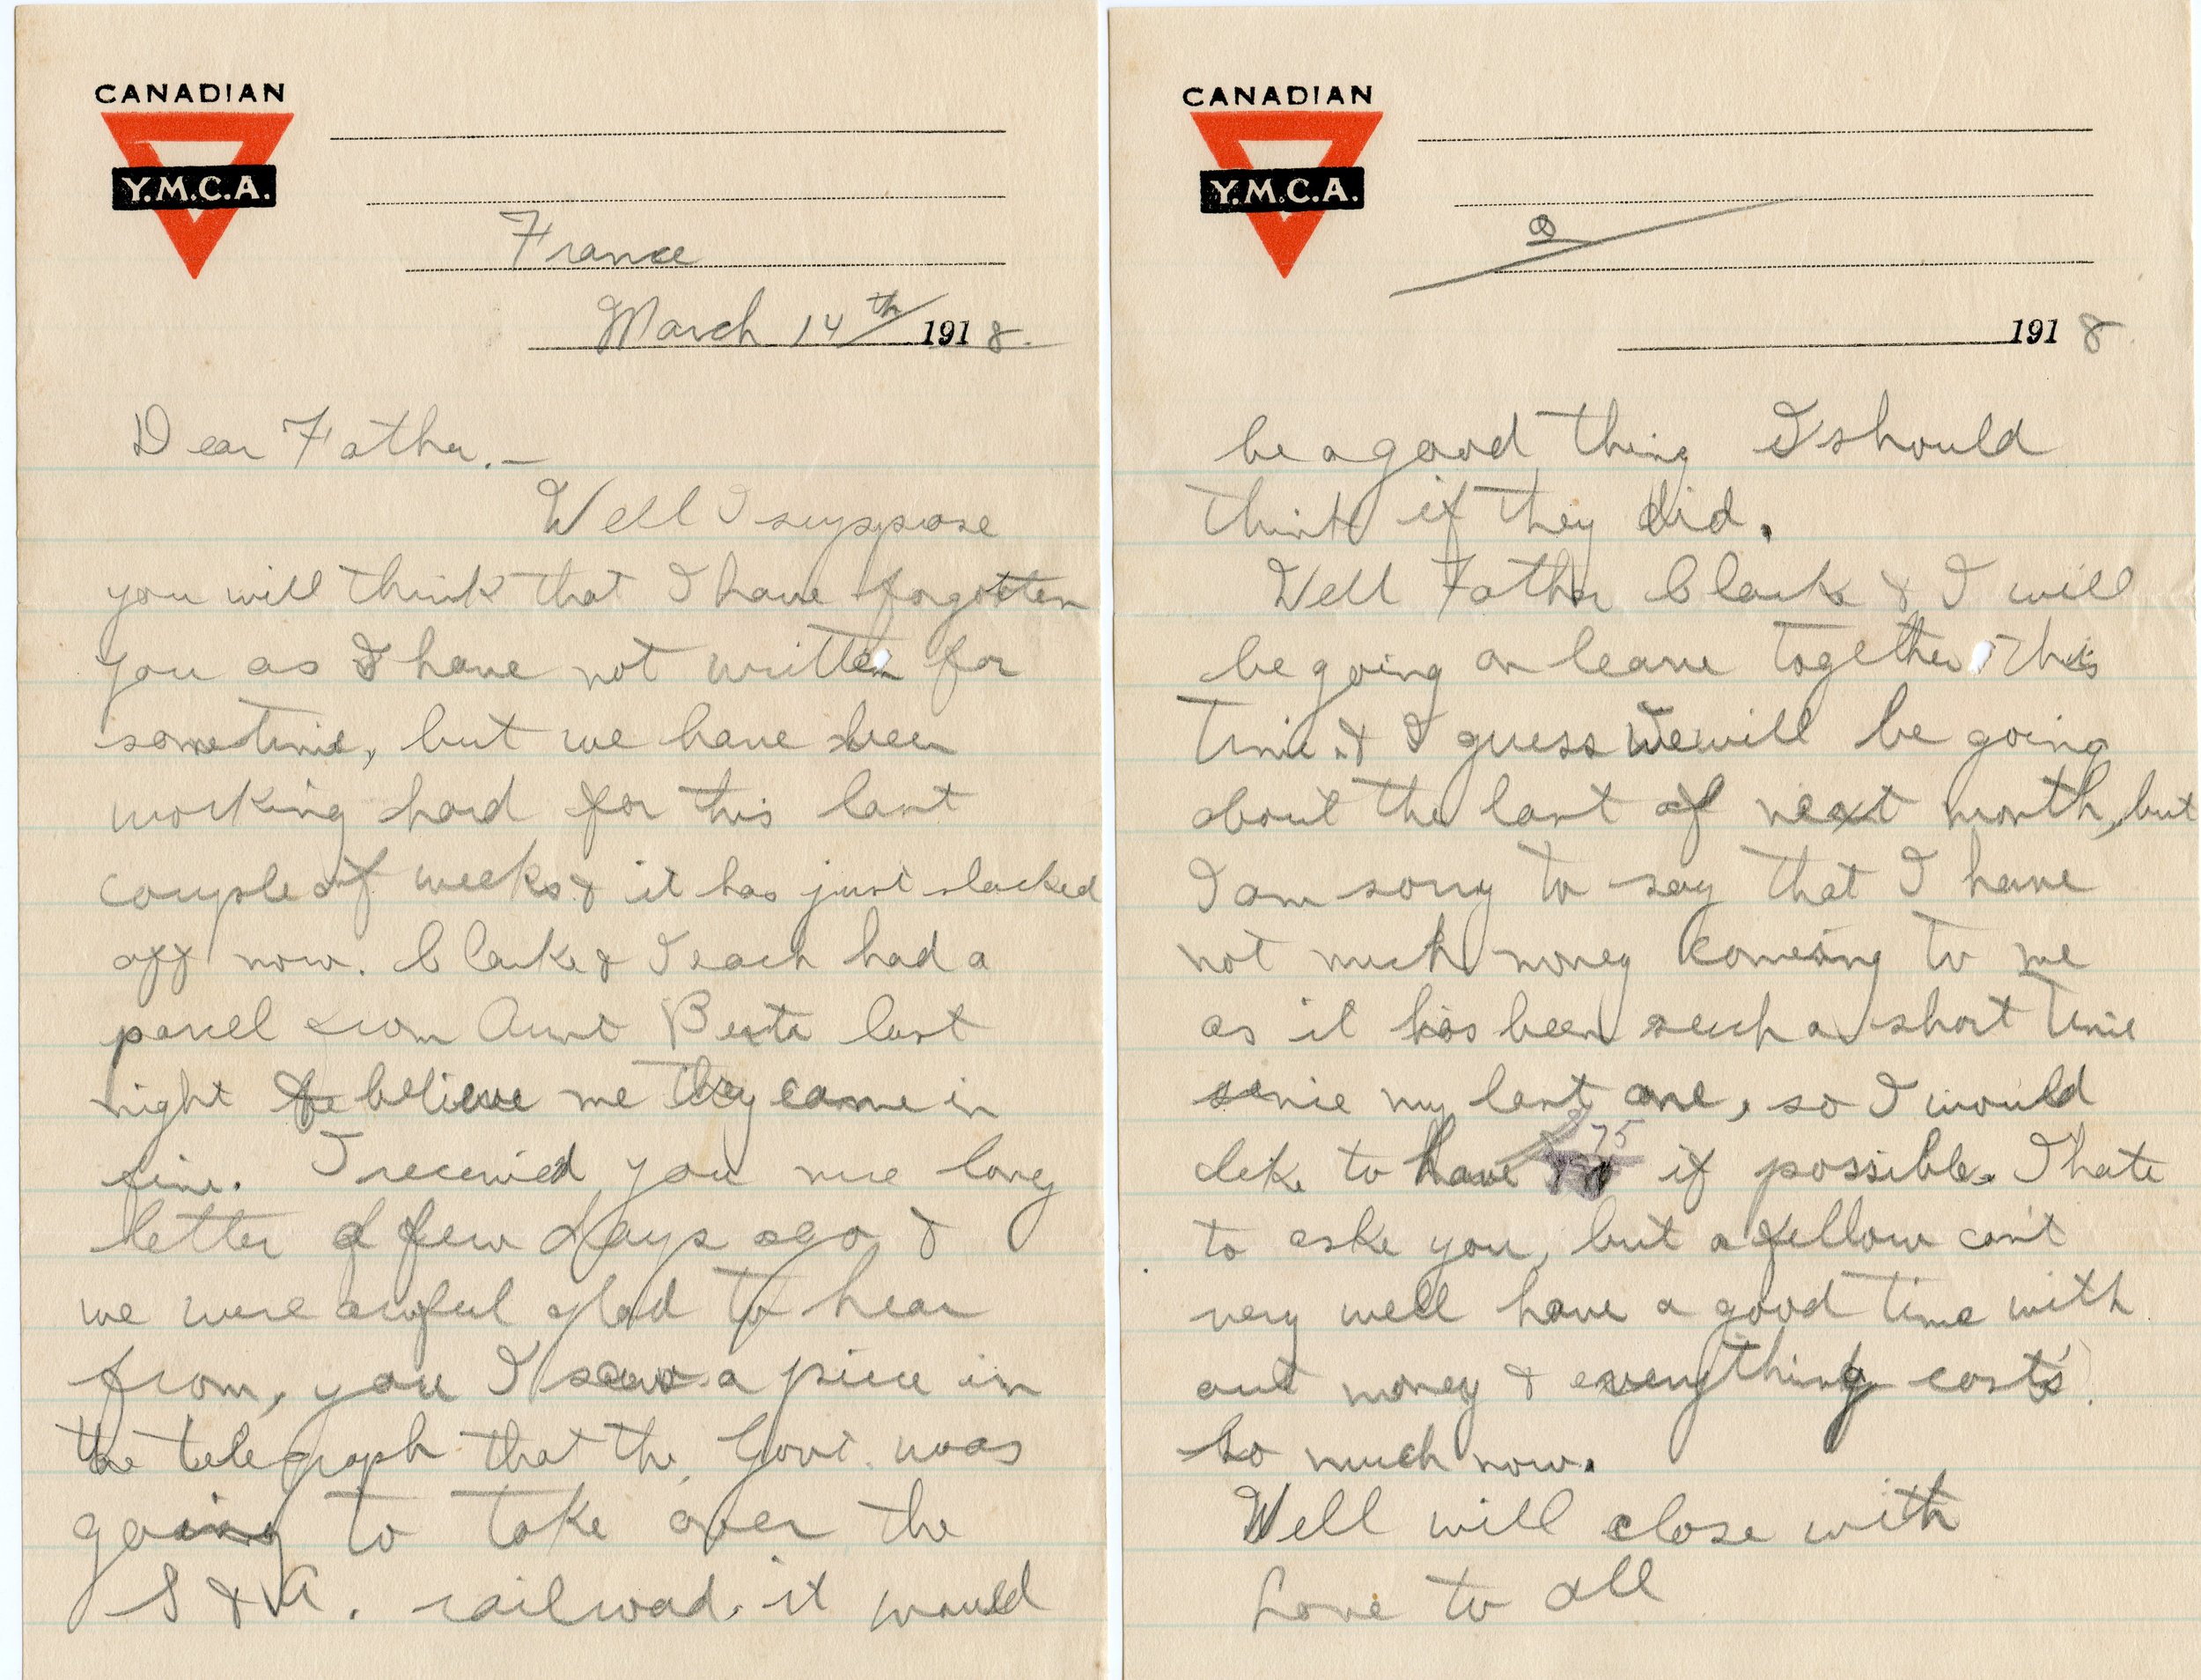 CANADIAN
Y.M.C.A.
France
March 14th/ 1918.
Dear Father.—
Well I suppose
you will think that I have forgotten
you as I have not written for
sometime, but we have been
working hard for this last
couple of weeks & it has just slacked
off now. Clark & I each had a
parcel from Aunt last
night & believe me they came in
fine. I received you nice long
letter a few days ago &
we were awful glad to hear
from, you I saw a piece in
the telegraph that the Govt. was
going to take over the
S & A. railroad. it would
CANADIAN
Y.M.C.A.
2
1918.
be a good thing I should
think if they did.
Well Father Clark & I will
be going on leave together this
time. & I guess we will be going
about the last of next month, but
I am sorry to say that I have
not much money comeing to me
as it has been such a short time
sinie my last one, so I would
like to have $75 if possible. I hate
to aske you, but a fellow can't
very well have a good time with
out money & everything costs
so much now.
Well will close with
Love to all